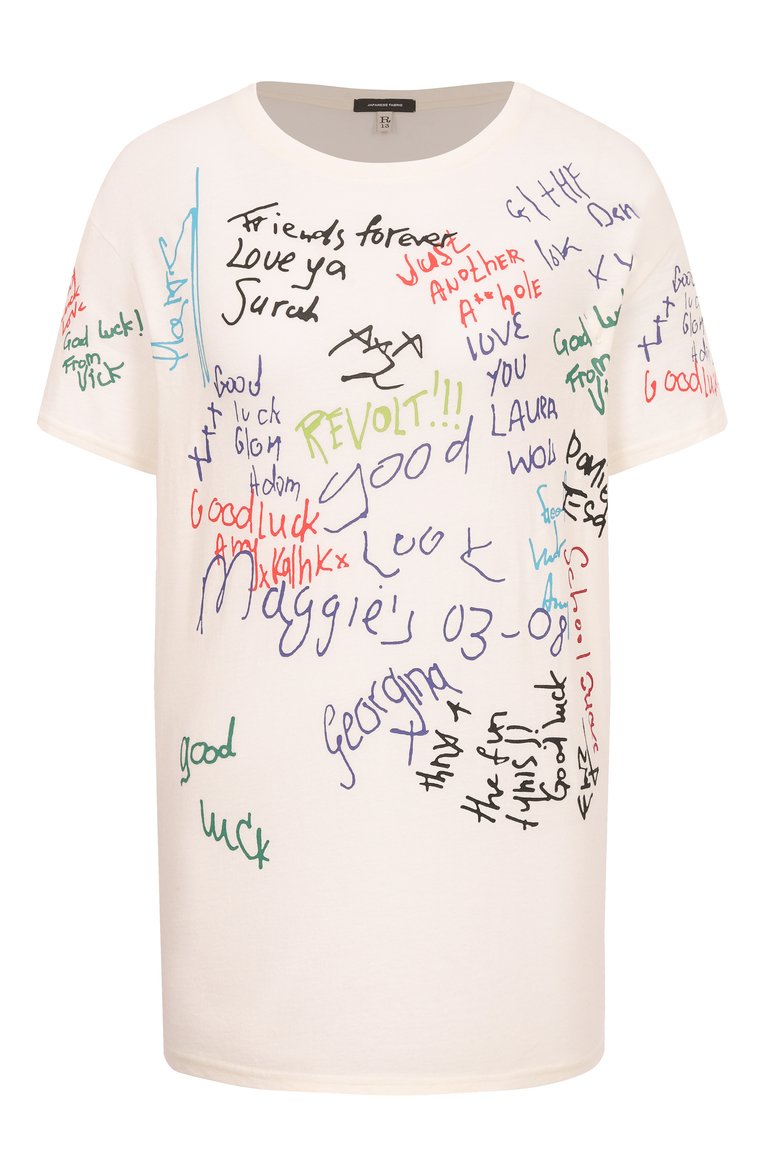 JAPANESE FABRIC
R
13
Friends forever
Love ya
Surah
Just
ANOTHER
A**hole
GI+HF
Dan
xx
LOVE
YOU
LAURA
Good Luck!
From
Vick
Good
luck
Glom
Adam
xxx
Good luck
Good Luck
From
Good
luck
Glom
Adam
xxx
REVOLT!!!
good
Look
Good luck
Amy
Maggie's 03-08
Georgina
x
thnx 4
the fun
Good luck
School
good
luck